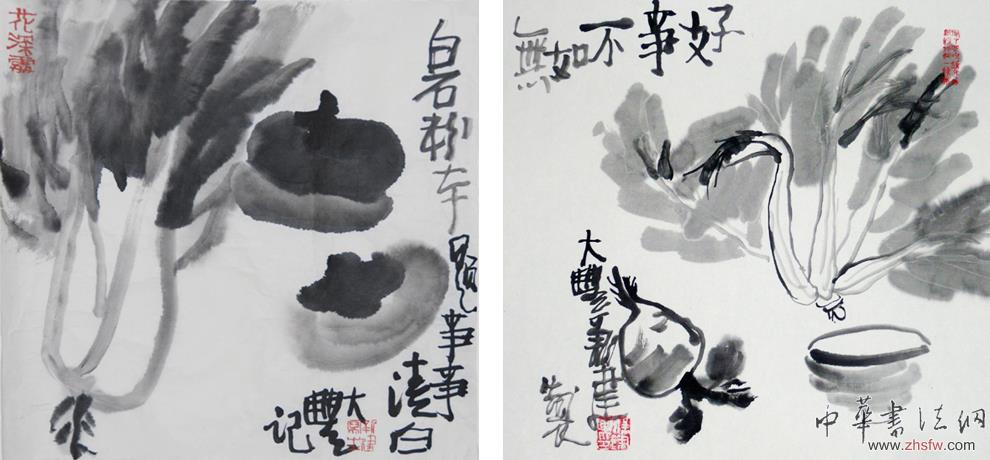 花深處
白石
題事事
清白
大豐
記
好事不如無
大豐新建
製
中華書法網
www.zhsfw.com